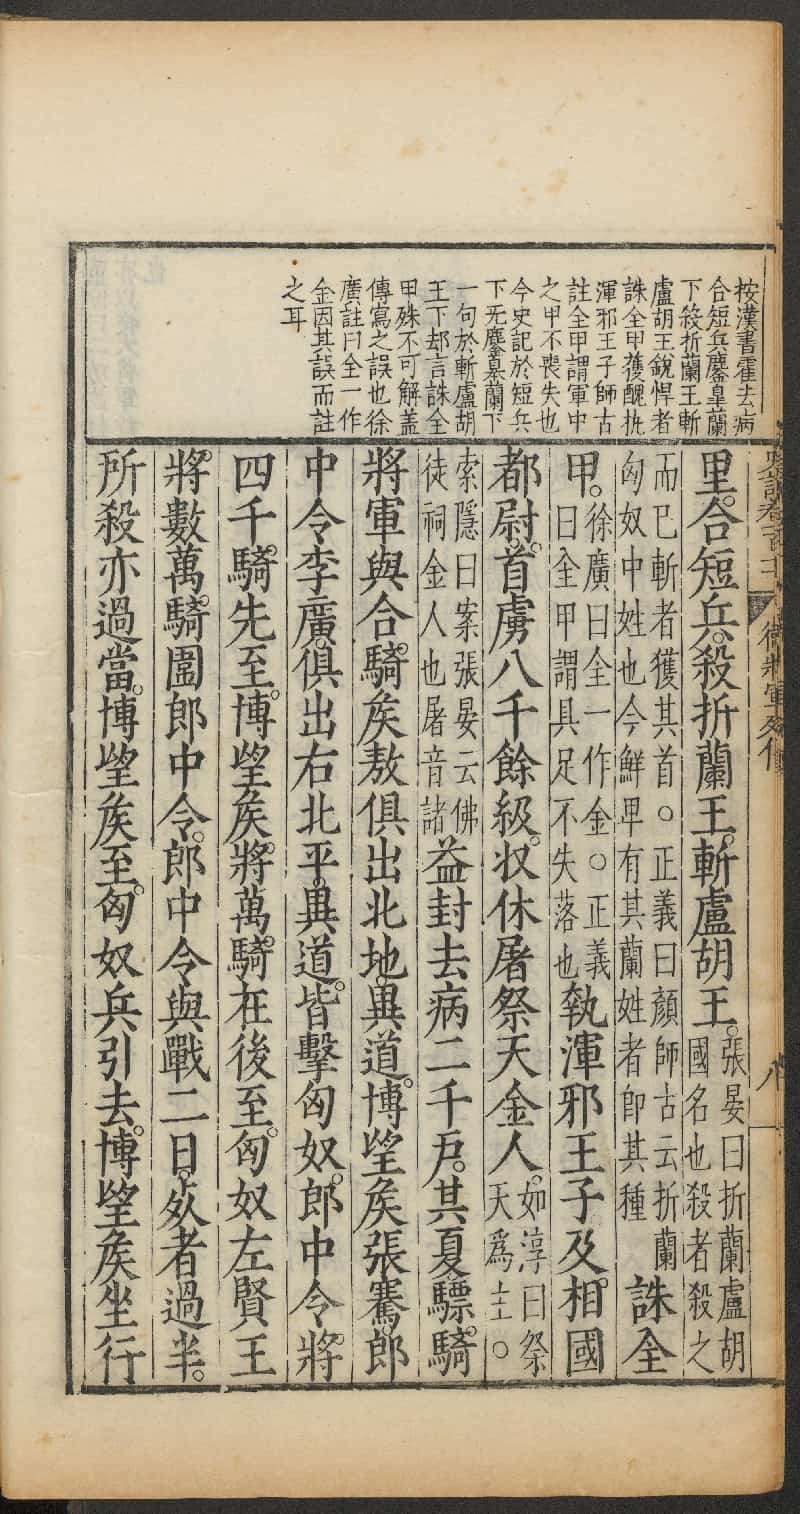 按漢書霍去病
合短兵鏖臯蘭
下殺折蘭王斬
盧胡王銳悍者
誅全甲獲醜執
渾邪王子師古
註全甲謂軍中
之甲不喪失也
今史記於短兵
下无鏖臯蘭下
一句於斬盧胡
王下却言誅全
甲殊不可解盖
傳寫之誤也徐
廣註曰全一作
金因其誤而註
之耳
史記卷一百十一 衛將軍列傳 八
里。合短兵。殺折蘭王。斬盧胡王。張晏曰折蘭盧胡國名也殺者殺之
而已斬者獲其首○正義曰顏師古云折蘭匈奴中姓也今鮮卑有其蘭姓者即其種誅全
甲。徐廣曰全一作金○正義曰全甲謂具足不失落也執渾邪王子及相國
都尉。首虜八千餘級。収休屠祭天金人。如淳曰祭天爲主○
索隱曰案張晏云佛徒祠金人也屠音諸益封去病二千戶。其夏驃騎
將軍與合騎矦敖俱出北地異道。博望矦張騫郎
中令李廣。俱出右北平異道。皆擊匈奴。郎中令將
四千騎先至。博望矦將萬騎在後至。匈奴左賢王
將數萬騎圍郎中令。郎中令與戰二日。㱙者過半。
所殺亦過當。博望矦至。匈奴兵引去。博望矦坐行